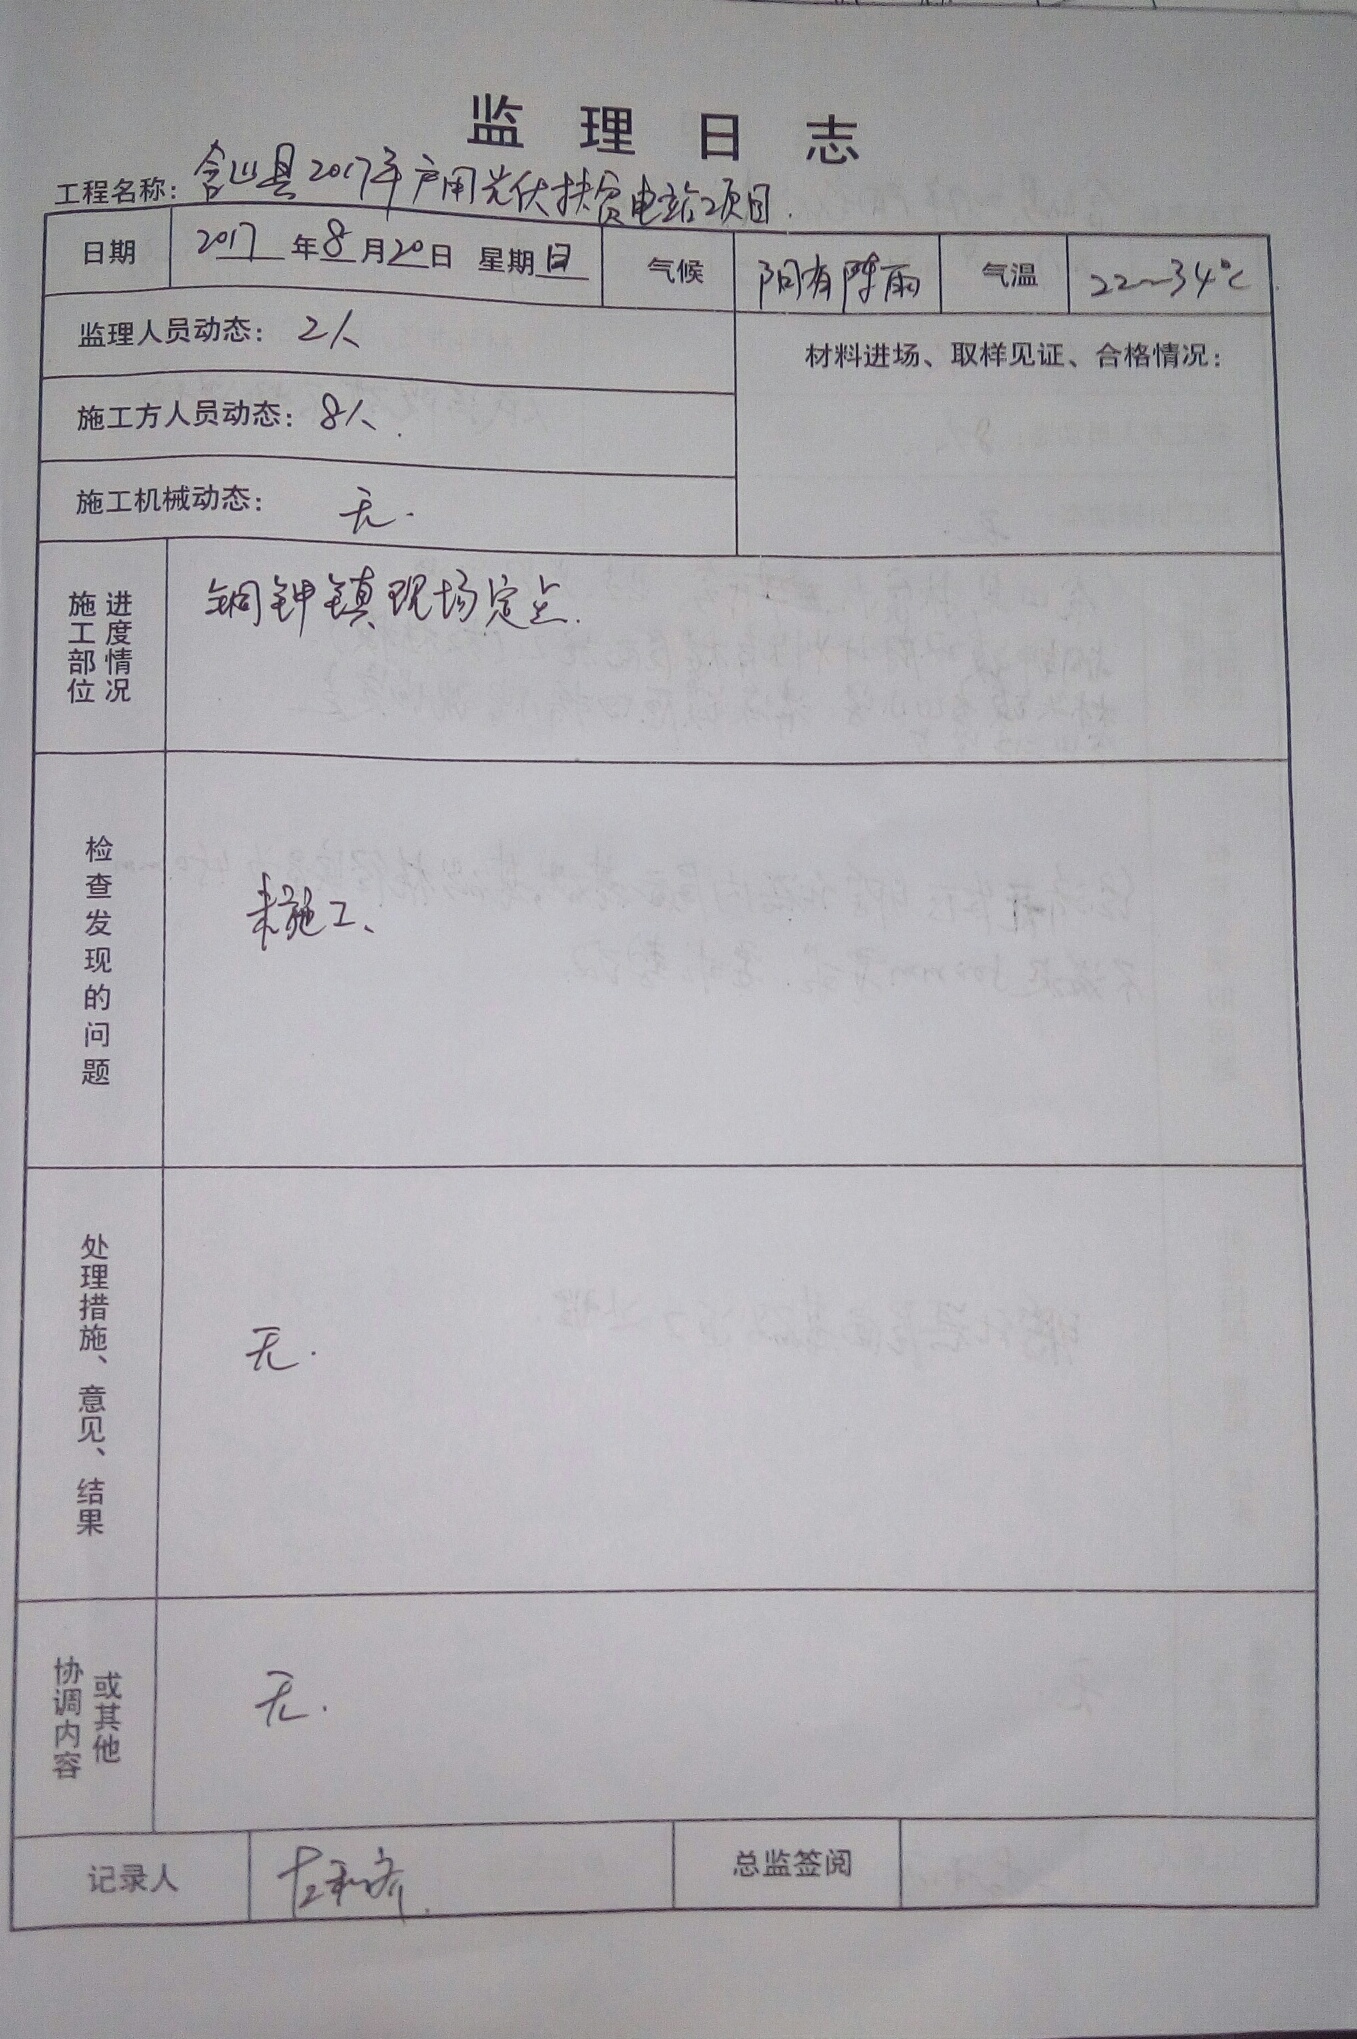 监理日志
工程名称：含山县2017年户用光伏扶贫电站项目.
日期 2017年8月20日 星期日 气候 阴有阵雨 气温 22~34℃
监理人员动态：2人
材料进场、取样见证、合格情况：
施工方人员动态：8人.
施工机械动态：无.
施工部位进度情况 铜钟镇现场定点.
检查发现的问题 未施工、
处理措施、意见、结果 无.
协调内容或其他 无.
记录人
总监签阅